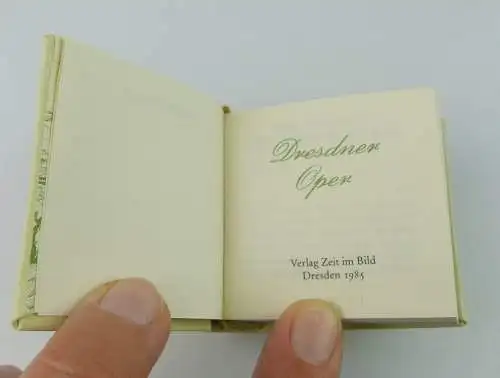 Dresdner
Oper
Verlag Zeit im Bild
Dresden 1985